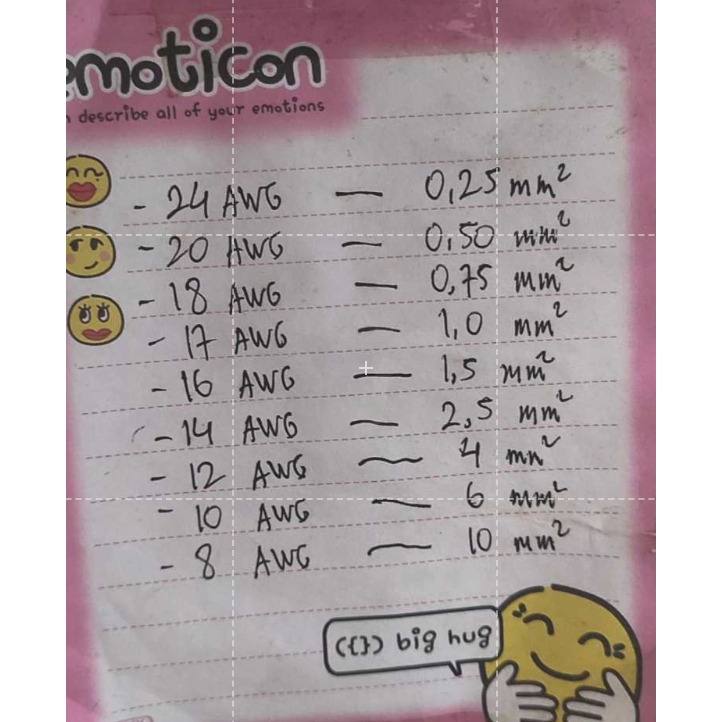 emoticon
describe all of your emotions
- 24 AWG — 0,25 mm²
- 20 AWG — 0,50 mm²
- 18 AWG — 0,75 mm²
- 17 AWG — 1,0 mm²
- 16 AWG — 1,5 mm²
- 14 AWG — 2,5 mm²
- 12 AWG — 4 mm²
- 10 AWG — 6 mm²
- 8 AWG — 10 mm²
({}) big hug